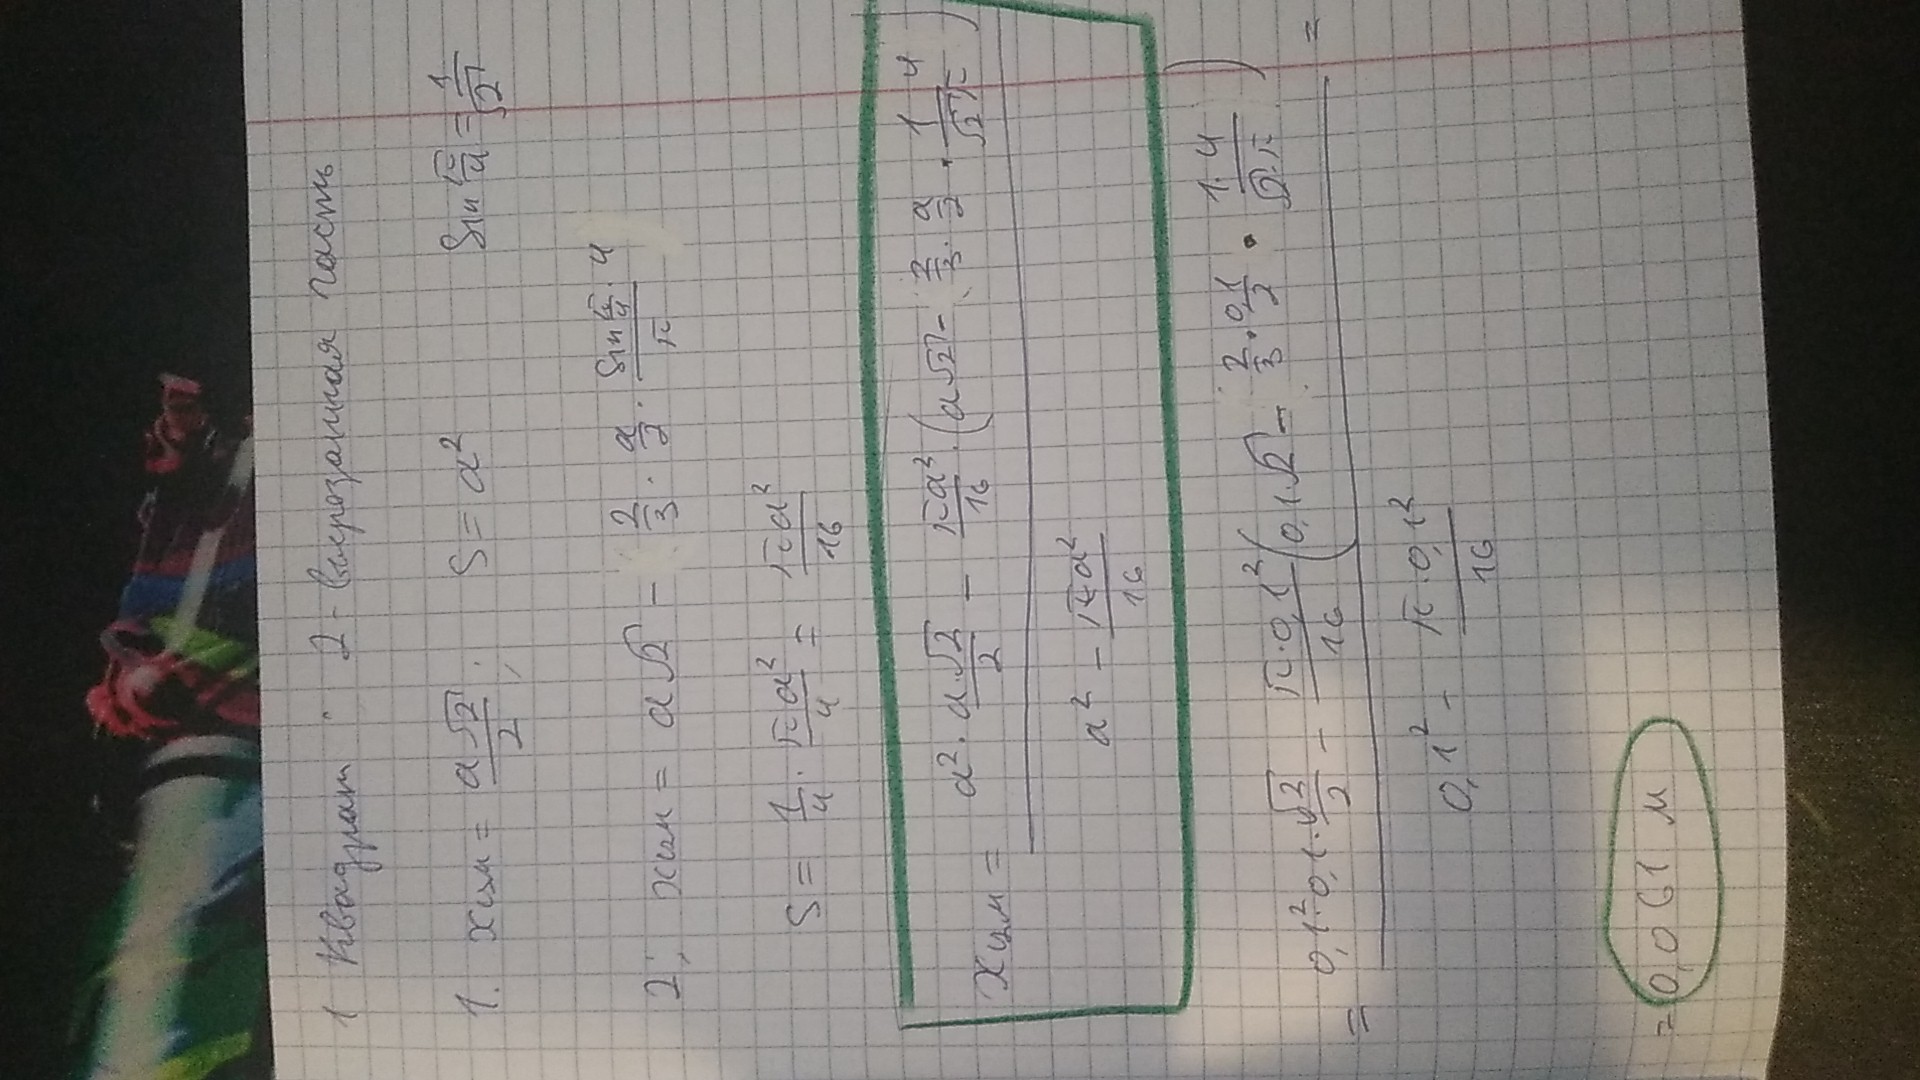 1 Квадрат ; 2 - вырезанная часть
1. xцм = a√2/2 ; S = a² Sin π/4 = 1/√2
2; xцм = a√2 - 2/3 · a/2 · Sin π/4 · 4/π
S = 1/4 · πa²/4 = πa²/16
xцм = (a² · a√2/2 - πa²/16 · (a√2 - 2/3 · a/2 · 1 4/√2 π)) / (a² - πa²/16)
= (0,1² · 0,1 · √2/2 - π · 0,1²/16 (0,1 · √2 - 2/3 · 0,1/2 · 1 · 4/√2 · π)) / (0,1² - π · 0,1²/16) =
= 0,061 м